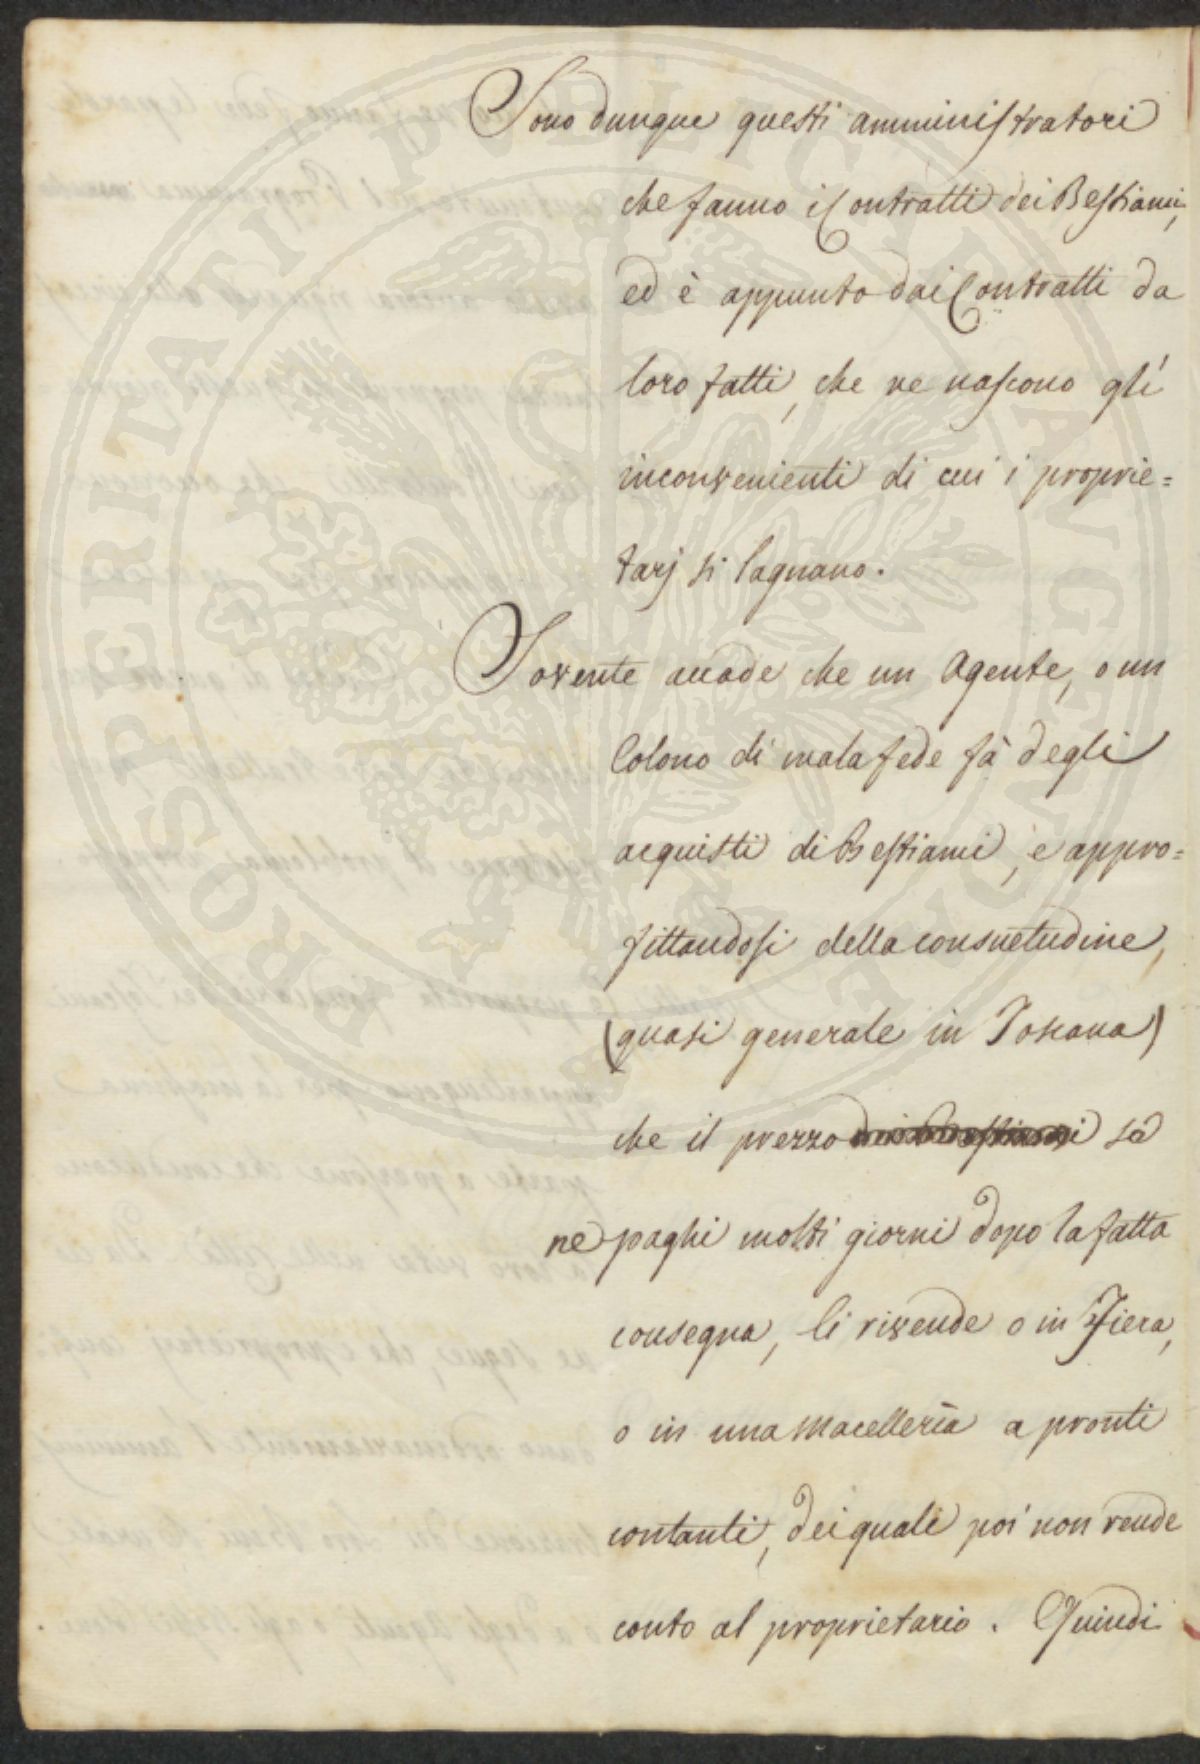 Sono dunque questi amministratori
che fanno i Contratti dei Bestiami,
ed è appunto dai Contratti da
loro fatti, che ne nascono gli
inconvenienti di cui i proprie=
tarj si lagnano.
Sovente accade che un Agente, o un
Colono di mala fede fà degli
acquisti di Bestiami, e appro=
fittandosi della consuetudine,
(quasi generale in Toscana)
che il prezzo dei Bestiami se
ne paghi molti giorni dopo la fatta
consegna, li rivende o in Fiera,
o in una Macellerìa a pronti
contanti, dei quali poi non rende
conto al proprietario. Quindi
PROSPERITATI PVBLICAE AVGENDAE